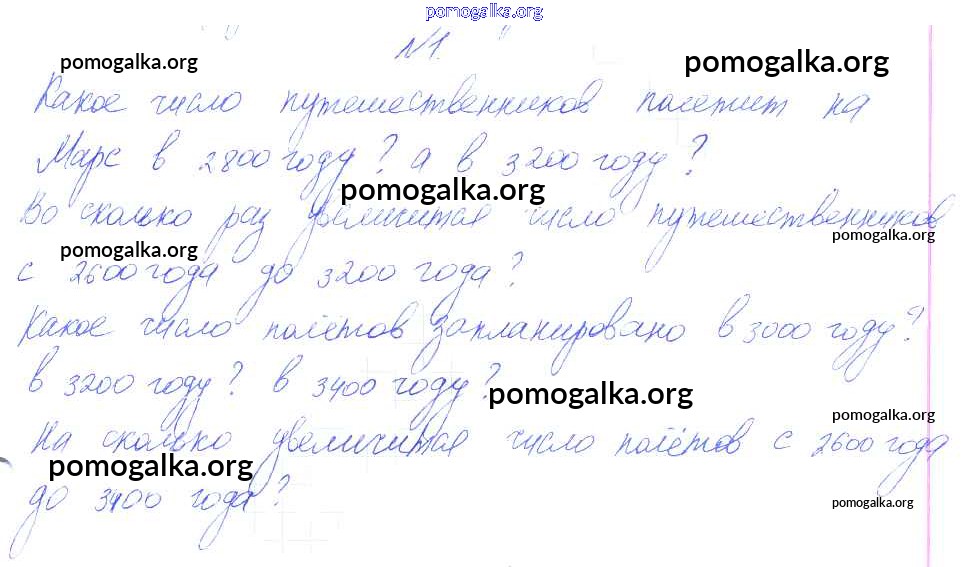 pomogalka.org
№1.
pomogalka.org pomogalka.org
Какое число путешественников полетит на
Марс в 2800 году? а в 3200 году?
pomogalka.org
Во сколько раз увеличится число путешественников
pomogalka.org pomogalka.org
с 2600 года до 3200 года?
Какое число полётов запланировано в 3000 году?
в 3200 году? в 3400 году?
pomogalka.org
pomogalka.org
На сколько увеличится число полётов с 2600 года
pomogalka.org
до 3400 года?
pomogalka.org